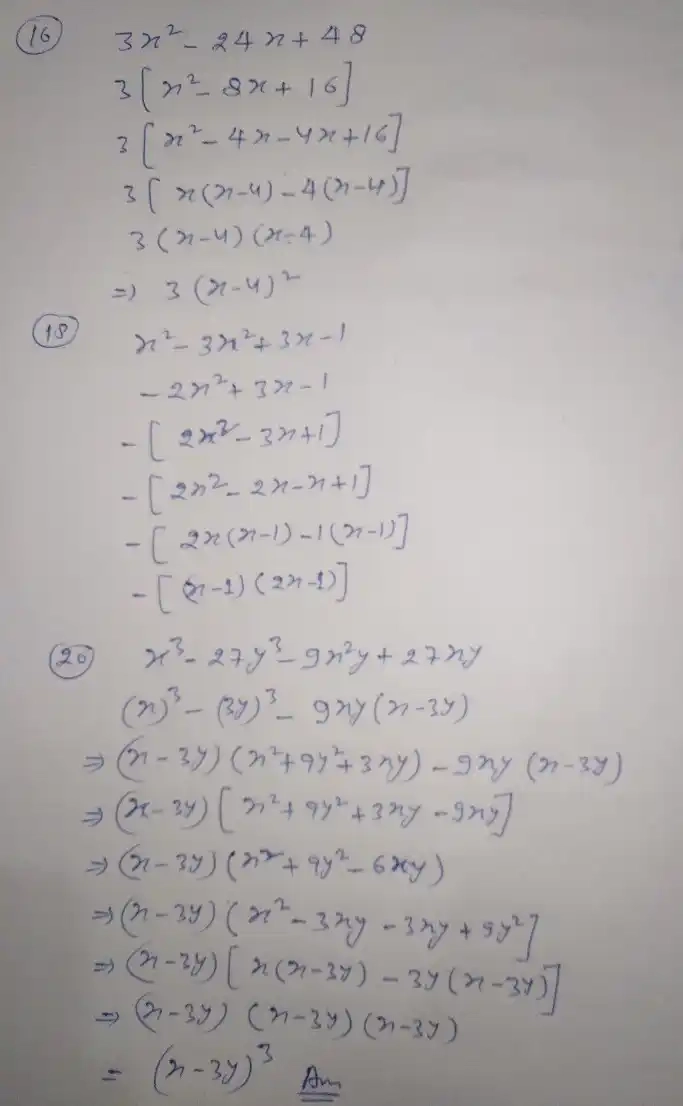 (16) 3x² - 24x + 48
3[x² - 8x + 16]
3[x² - 4x - 4x + 16]
3[x(x-4) - 4(x-4)]
3(x-4)(x-4)
=) 3(x-4)²
(18) x² - 3x² + 3x - 1
- 2x² + 3x - 1
- [2x² - 3x + 1]
- [2x² - 2x - x + 1]
- [2x(x-1) - 1(x-1)]
- [(x-1)(2x-1)]
(20) x³ - 27y³ - 9x²y + 27xy
(x)³ - (3y)³ - 9xy(x-3y)
⇒ (x-3y)(x²+9y²+3xy) - 9xy(x-3y)
⇒ (x-3y)[x²+9y²+3xy-9xy]
⇒ (x-3y)(x²+9y²-6xy)
⇒ (x-3y)(x²-3xy-3xy+9y²]
⇒ (x-3y)[x(x-3y) - 3y(x-3y)]
⇒ (x-3y)(x-3y)(x-3y)
= (x-3y)³ Ans